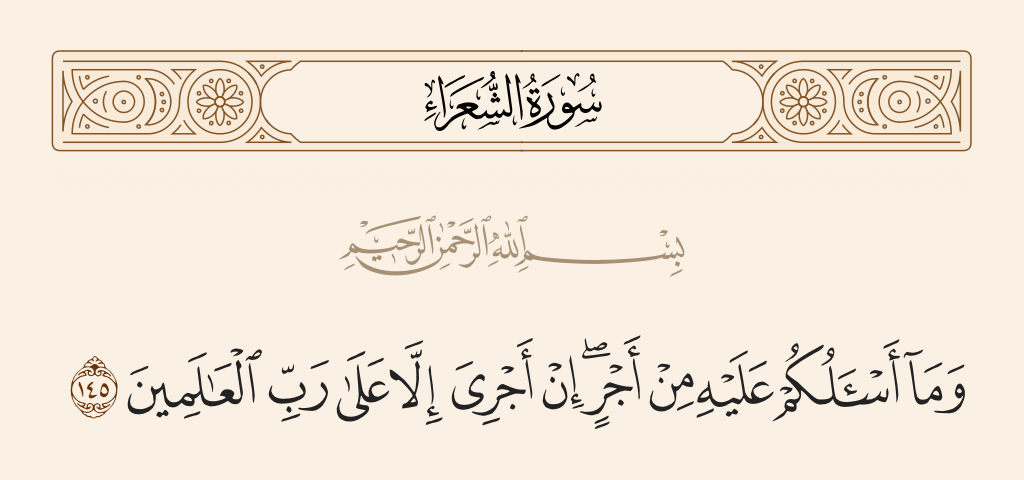 سُورَةُ الشُّعَرَاءِ
بِسْمِ ٱللَّهِ ٱلرَّحْمَٰنِ ٱلرَّحِيمِ
وَمَآ أَسْـَٔلُكُمْ عَلَيْهِ مِنْ أَجْرٍ ۖ إِنْ أَجْرِىَ إِلَّا عَلَىٰ رَبِّ ٱلْعَـٰلَمِينَ ١٤٥